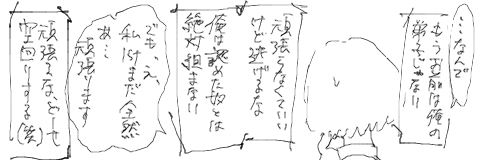 …なんで
もうお前は俺の
弟子じゃない
頑張らなくていい
けど逃げまな
俺は認めた奴とは
絶対組まない
でもっ、え、
私はまだ全然
あ…
頑張ります
頑張るな、どーせ
空回りする(笑)